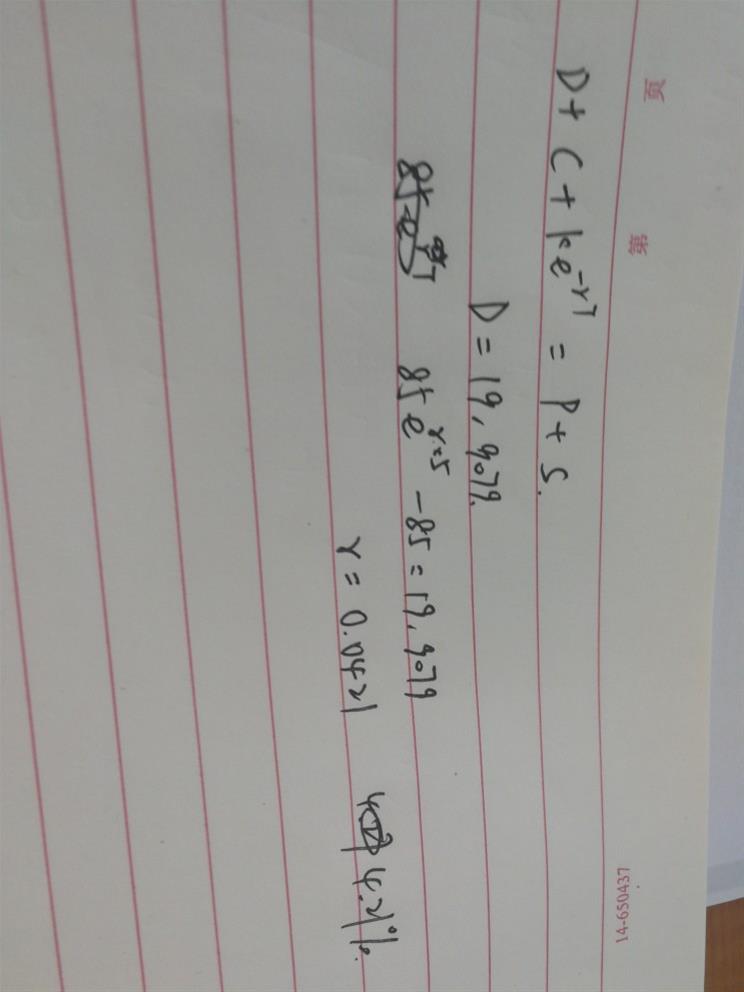 第 页
14-650437
D + C + ke^{-rT} = P + S.
D = 19,9079.
85e^{r·5} - 85 = 19,9079
r = 0.0421 4.21%.